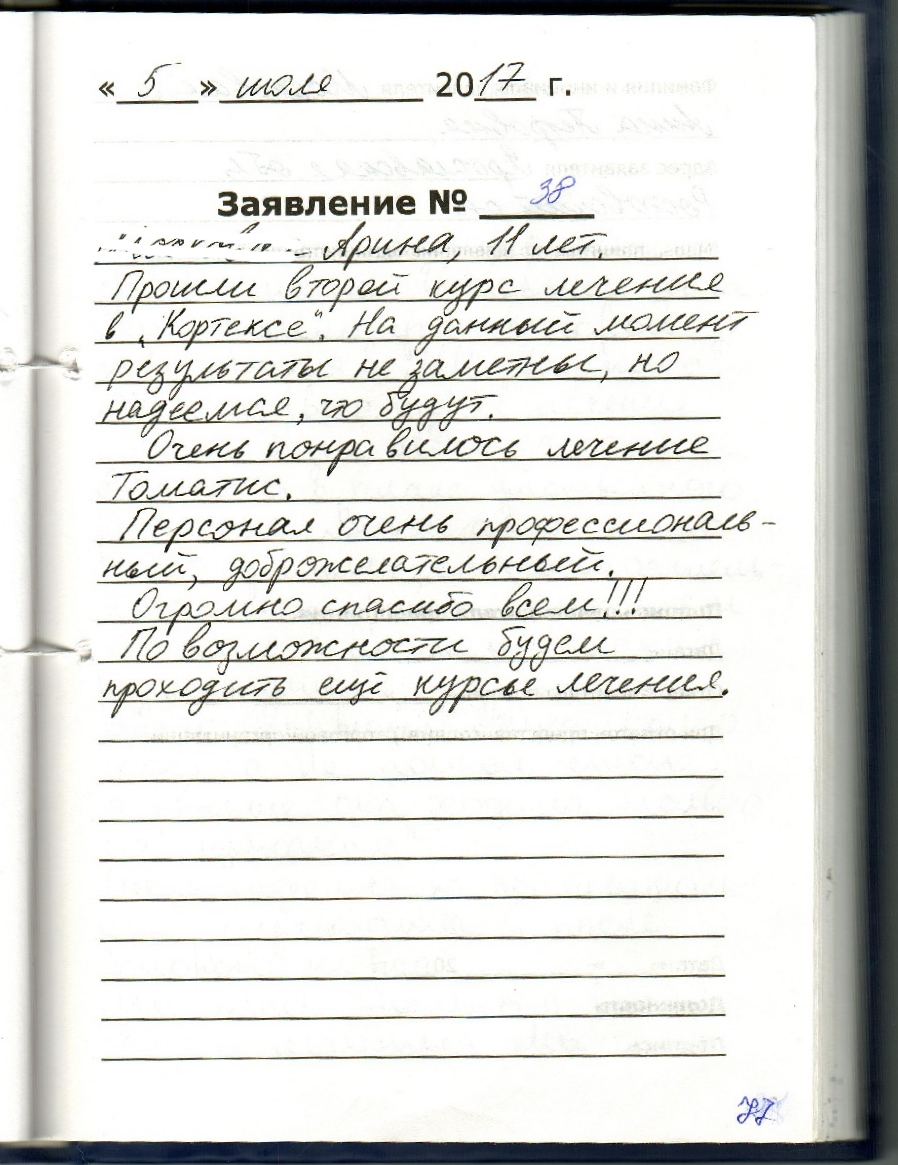 « 5 » июля 2017 г.
Заявление № 38
Арина, 11 лет,
Прошли второй курс лечение
в „Кортексе". На данный момент
результаты не заметны, но
надеемся, что будут.
Очень понравилось лечение
Томатис.
Персонал очень профессиональ-
ный, доброжелательный.
Огромно спасибо всем!!!
По возможности будем
проходить ещё курсы лечения.